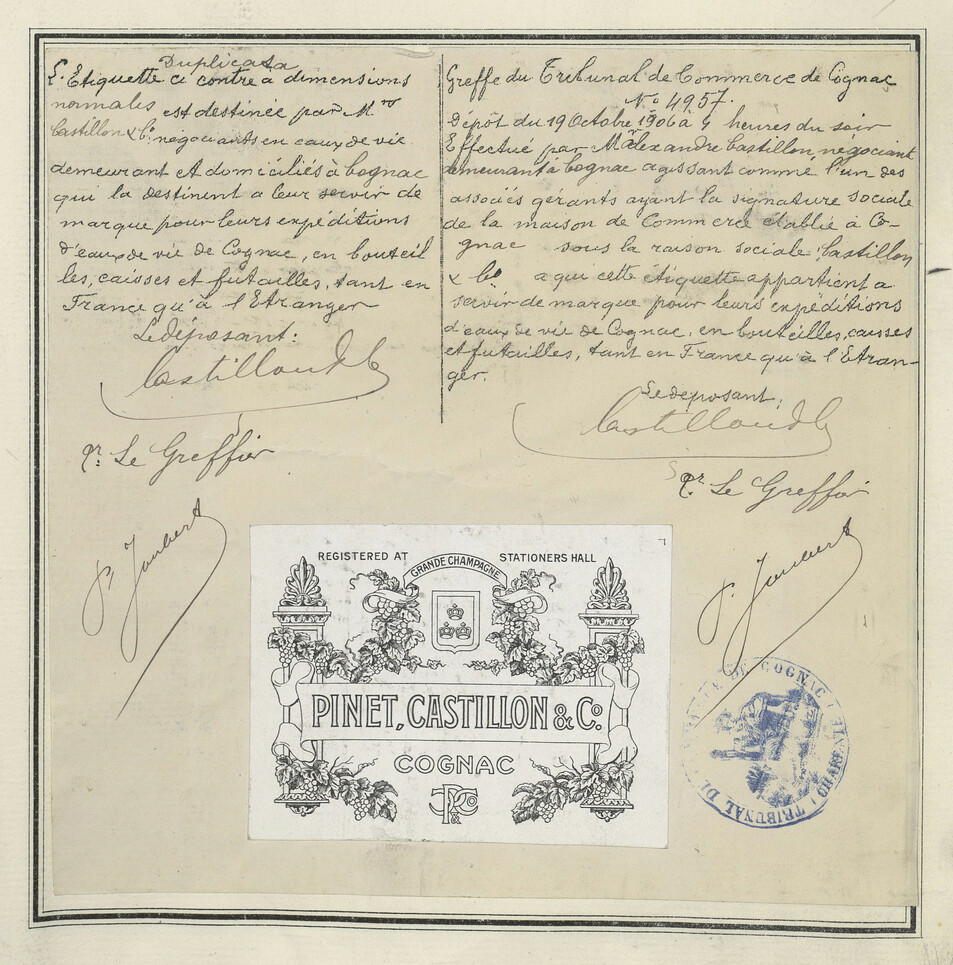 Duplicata
L'Etiquette ci contre a dimensions
normales est destinée par MM.rs
Castillon & Co. négociants en eaux de vie
demeurant et domiciliés à Cognac
qui la destinent a leur servir de
marque pour leurs expéditions
d'eaux de vie de Cognac, en bouteil
les, caisses et futailles, tant en
France qu'à l'Etranger
Le déposant:
Castillon & Co
pr. Le Greffier
P. Joubert
Greffe du Tribunal de Commerce de Cognac
No 4957.
Dépôt du 19 Octobre 1906 à 4 heures du soir
Effectué par Mr Alexandre Castillon, négociant
demeurant à Cognac agissant comme l'un des
associés gérants ayant la signature sociale
de la maison de Commerce établie à Co-
gnac sous la raison sociale Castillon
& Co a qui cette étiquette appartient a
servir de marque pour leurs expéditions
d'eaux de vie de Cognac, en bouteilles, caisses
et futailles, tant en France qu'à l'Etran-
ger.
Le déposant;
Castillon & Co
pr. Le Greffier
P. Joubert
REGISTERED AT STATIONERS HALL
GRANDE CHAMPAGNE
PINET, CASTILLON & Co.
COGNAC
TRIBUNAL DE DE COGNAC